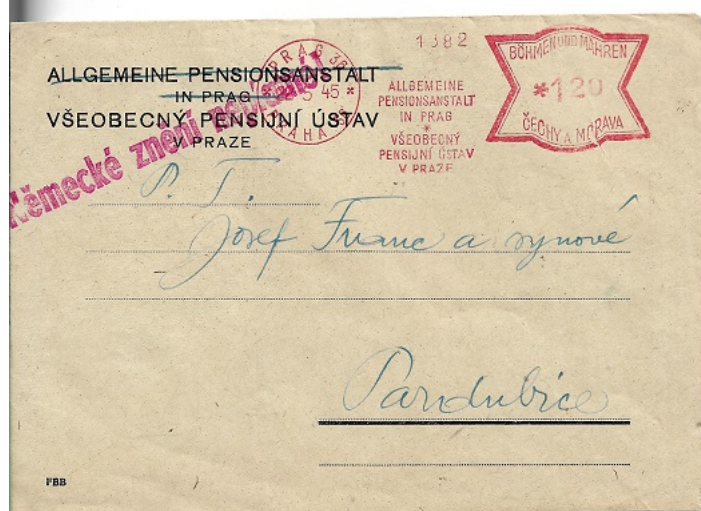 ALLGEMEINE PENSIONSANSTALT
IN PRAG
VŠEOBECNÝ PENSIJNÍ ÚSTAV
V PRAZE
Německé znění neplatí!
PRAG 36
5 45 *
PRAHA
1382
ALLGEMEINE
PENSIONSANSTALT
IN PRAG
*
VŠEOBECNÝ
PENSIJNÍ ÚSTAV
V PRAZE
BÖHMEN UND MÄHREN
*120
ČECHY A MORAVA
P. T.
Josef Franc a synové
Pardubice
FBB